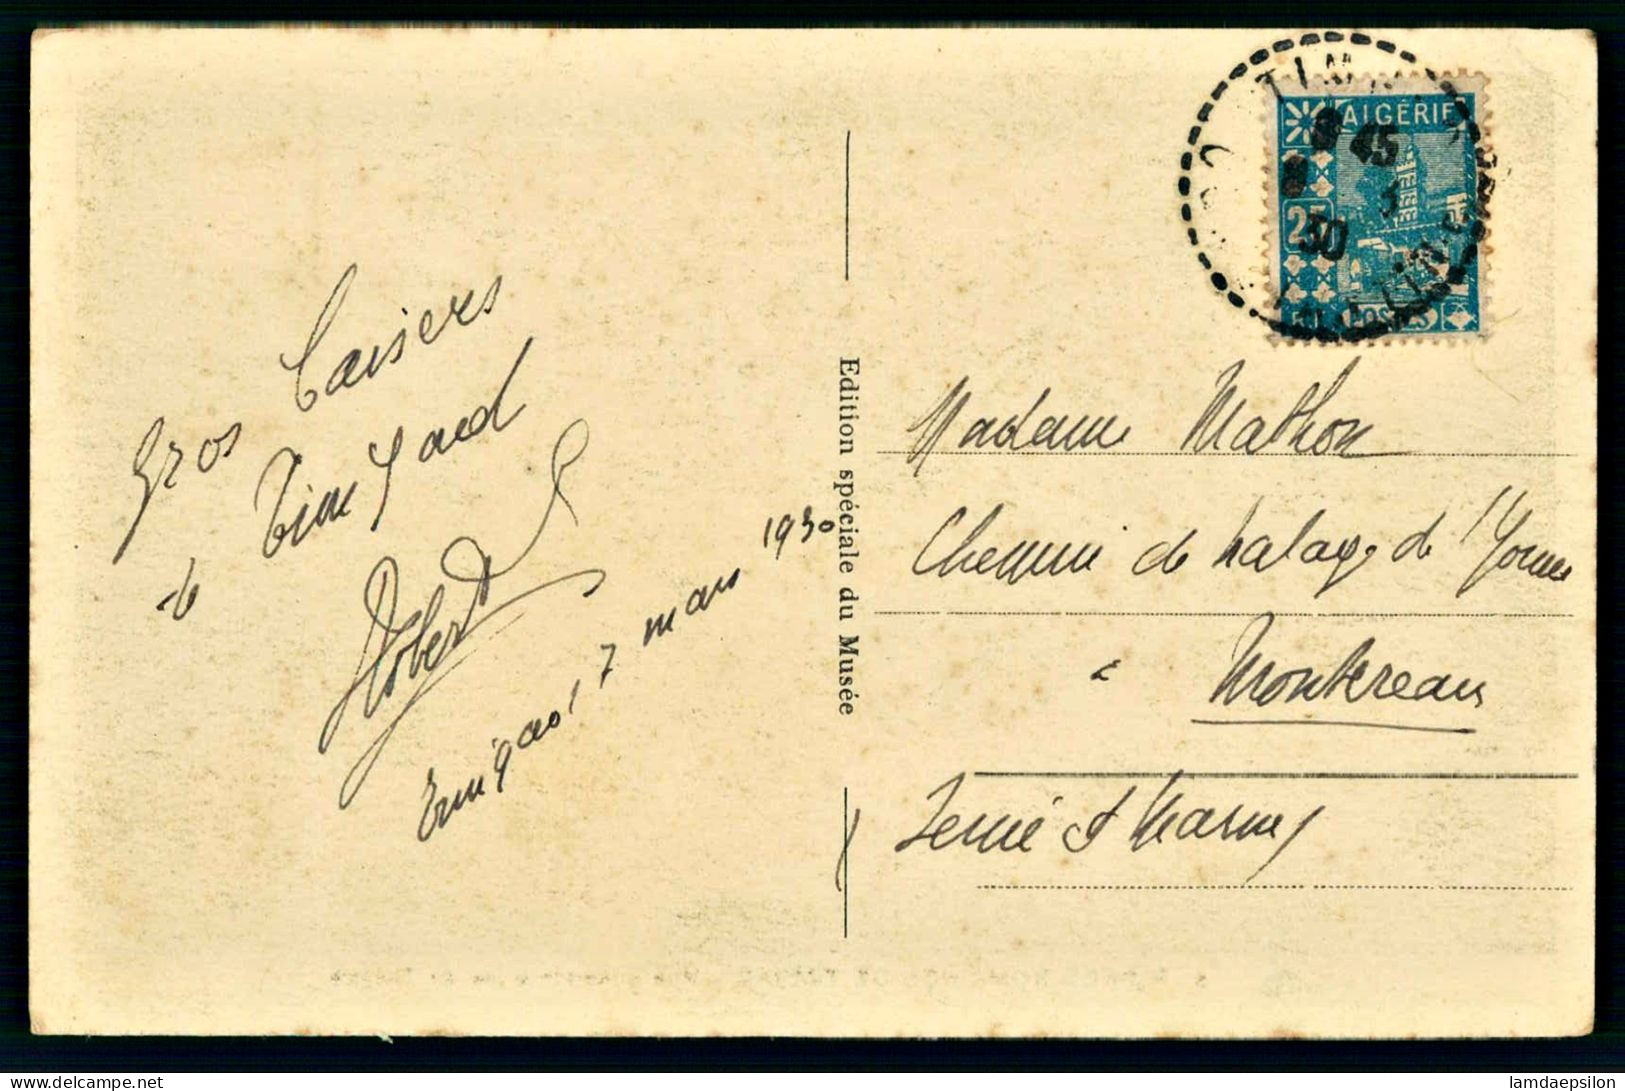 Gros baisers
de Timgad
Robert
Timgad, 7 mars 1930
Edition spéciale du Musée
ALGÉRIE
25
POSTES
45
30
Madame Mathon
Chemin de halage de l'Yonne
à Montereau
Seine et Marne
lamdaepsilon